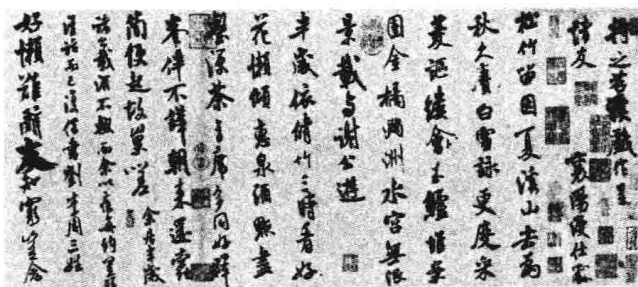 將之苕溪戲作呈
諸友 襄陽漫仕黻
松竹留因夏溪山去為
秋久賡白雪詠更度采
菱謳縷會玉鱸堆案
團金橘滿洲水宮無限
景載與謝公遊
半歲依脩竹三時看好
花懶傾惠泉酒點盡
壑源茶主席多同好群
峰伴不譁朝來還蠹
簡便起故巢嗟 余居半歲
諸公載酒不輟而余以疾每約置膳
清話而已復借書劉李周三姓
好懶難辭友知窮豈念